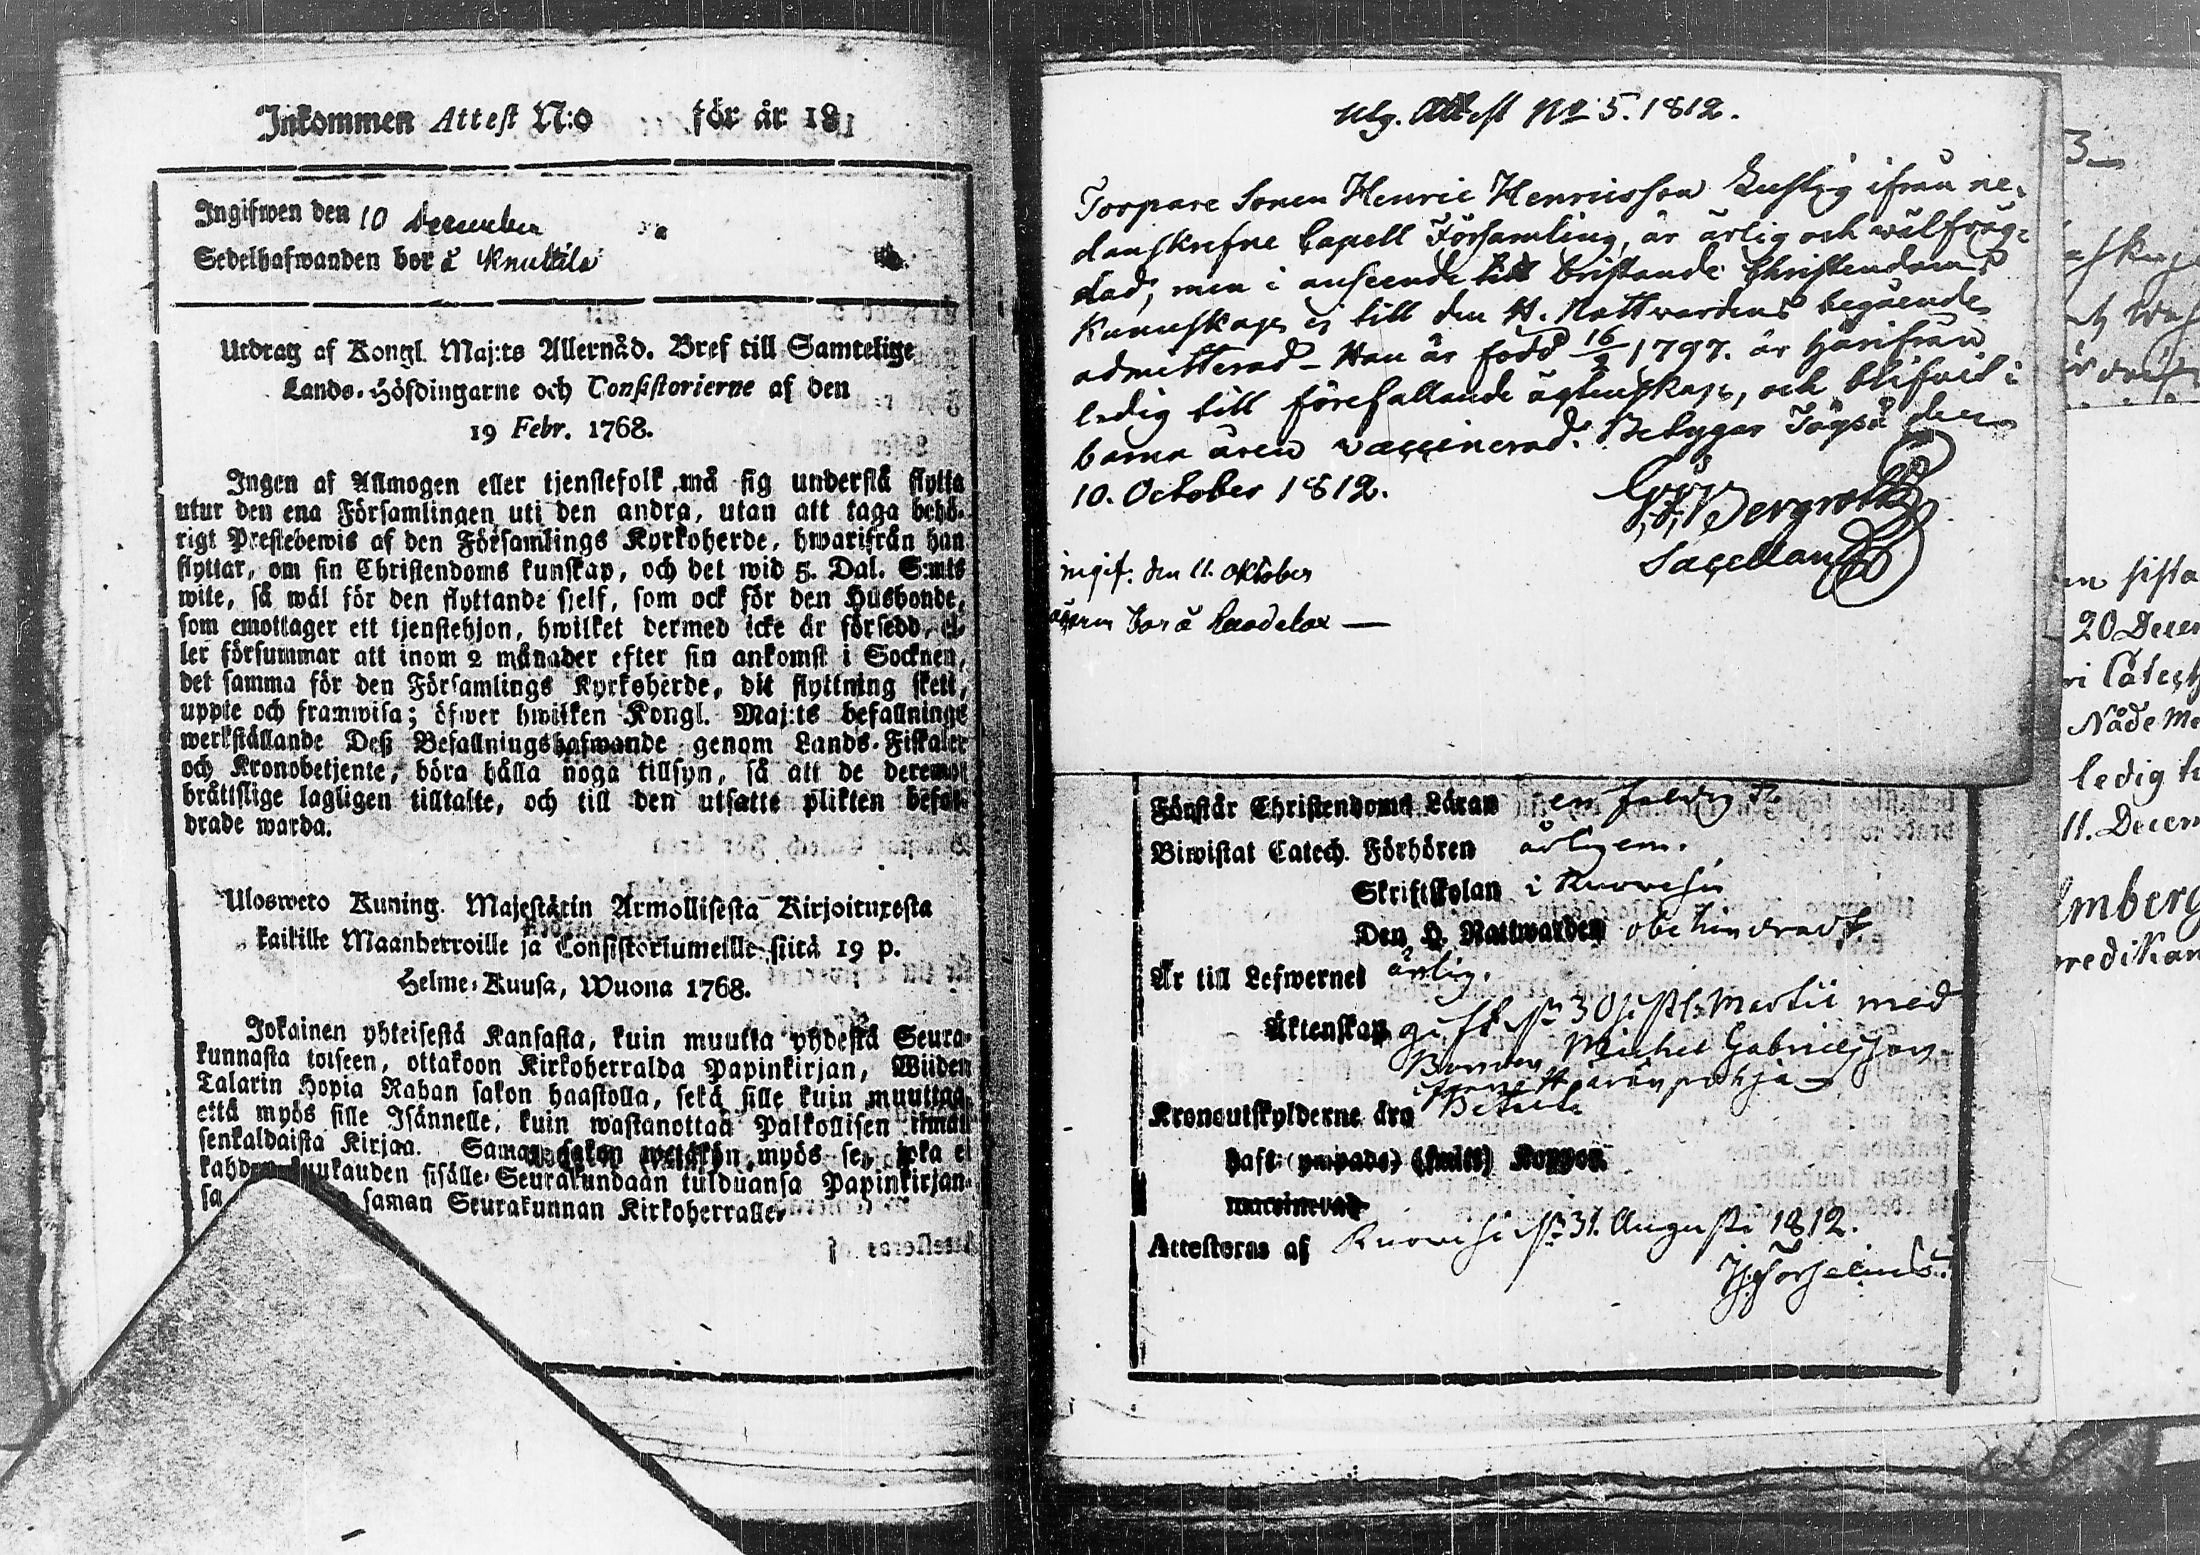 Inkommen Attest N:o för år 181
Ingifwen den 10 December
Sedelhafwanden bor å Knuttila
Utdrag af Kongl. Maj:ts Allernåd. Bref till Samtelige
Lands-Höfdingarne och Consistorierne af den
19 Febr. 1768.
Ingen af Allmogen eller tjenstefolk må sig understå flytta
utur den ena Församlingen uti den andra, utan att taga behö-
rigt Prestebewis af den Församlings Kyrkoherde, hwarifrån han
flyttar, om sin Christendoms kunskap, och det wid 5. Dal. S:mts
wite, så wäl för den flyttande sjelf, som ock för den Husbonde,
som emottager ett tjenstehjon, hwilket dermed icke är försedd, el-
ler försummar att inom 2 månader efter sin ankomst i Socknen,
det samma för den Församlings Kyrkoherde, dit flyttning skett,
uppte och framwisa; öfwer hwilken Kongl. Maj:ts befallnings
werkställande Deß Befallningshafwande genom Lands-Fiskaler
och Kronobetjente, böra hålla noga tillsyn, så att de deremot
bråttslige lagligen tilltalte, och till den utsatte plikten befor-
drade warda.
Ulosweto Kuning. Majestätin Armollisesta Kirjoituxesta
kaikille Maanherroille ja Consistoriumeille siitä 19 p.
Helme-Kuusa, Wuona 1768.
Jokainen yhteisestä Kansasta, kuin muutta yhdestä Seura-
kunnasta toiseen, ottakoon Kirkoherralda Papinkirjan, Wiiden
Talarin Hopia Rahan sakon haastolla, sekä sille kuin muuttaa,
että myös sille Isännelle, kuin wastanottaa Palkollisen ilman
senkaldaista Kirjaa. Saman sakon wetäkön myös se, joka ei
kahden kuukauden sisälle Seurakundaan tulduansa Papinkirjan-
sa saman Seurakunnan Kirkoherralle
Utg. Attest No 5. 1812.
Torpare Sonen Henric Henricsson Lustig ifrån ne-
danskrefne Capell Församling, är ärlig och wälfräg-
dad, men i anseende till bristande Christendoms
Kunskap, ej till den H. Nattvardens begående
admitterad – Han är född 16/2 1797. är härifrån
ledig till förefallande ägtenskap, och blifvit i
barna åren vaccinerad. Betygar den
10. October 1812.
Bergroth
Sacellan
ingif. den 11. Oktober
Förstår Christendoms Läran
Biwistat Catech. Förhören årligen.
Skriftskolan i Kuorehsi
Den H. Nattwarden obehindradt
Är till Lefwernet ärlig.
Äktenskap gift d. 30 Martii med
Bonden Michel Gabrielsson
Kronoutskylderne äro Betalte
haft (ympade) (smitt) Koppor
vaccinerad
Attesteras af Kuorehsi d. 31. Augusti 1812.
3
20 Decem
Nåde Me
ledig t
11. Decem
mberg
redikan